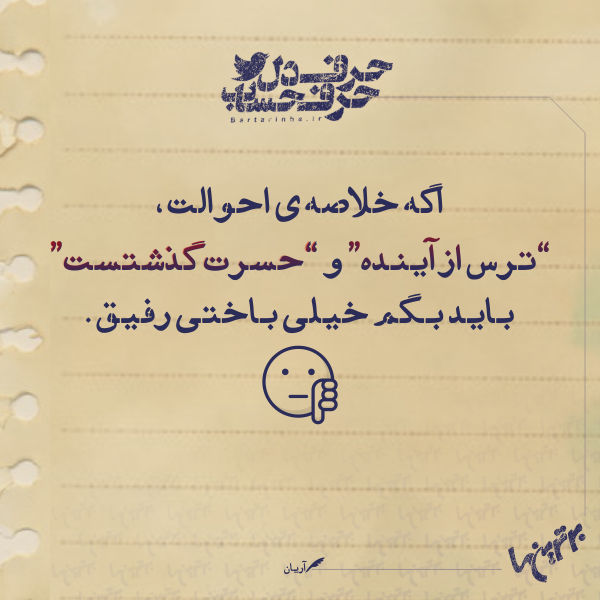 حرف دل
حرف حساب
Bartarinha.ir
اگه خلاصه ی احوالت،
“ترس از آینده” و “حسرت گذشتست”
باید بگم خیلی باختی رفیق.
آریان
برترین‌ها